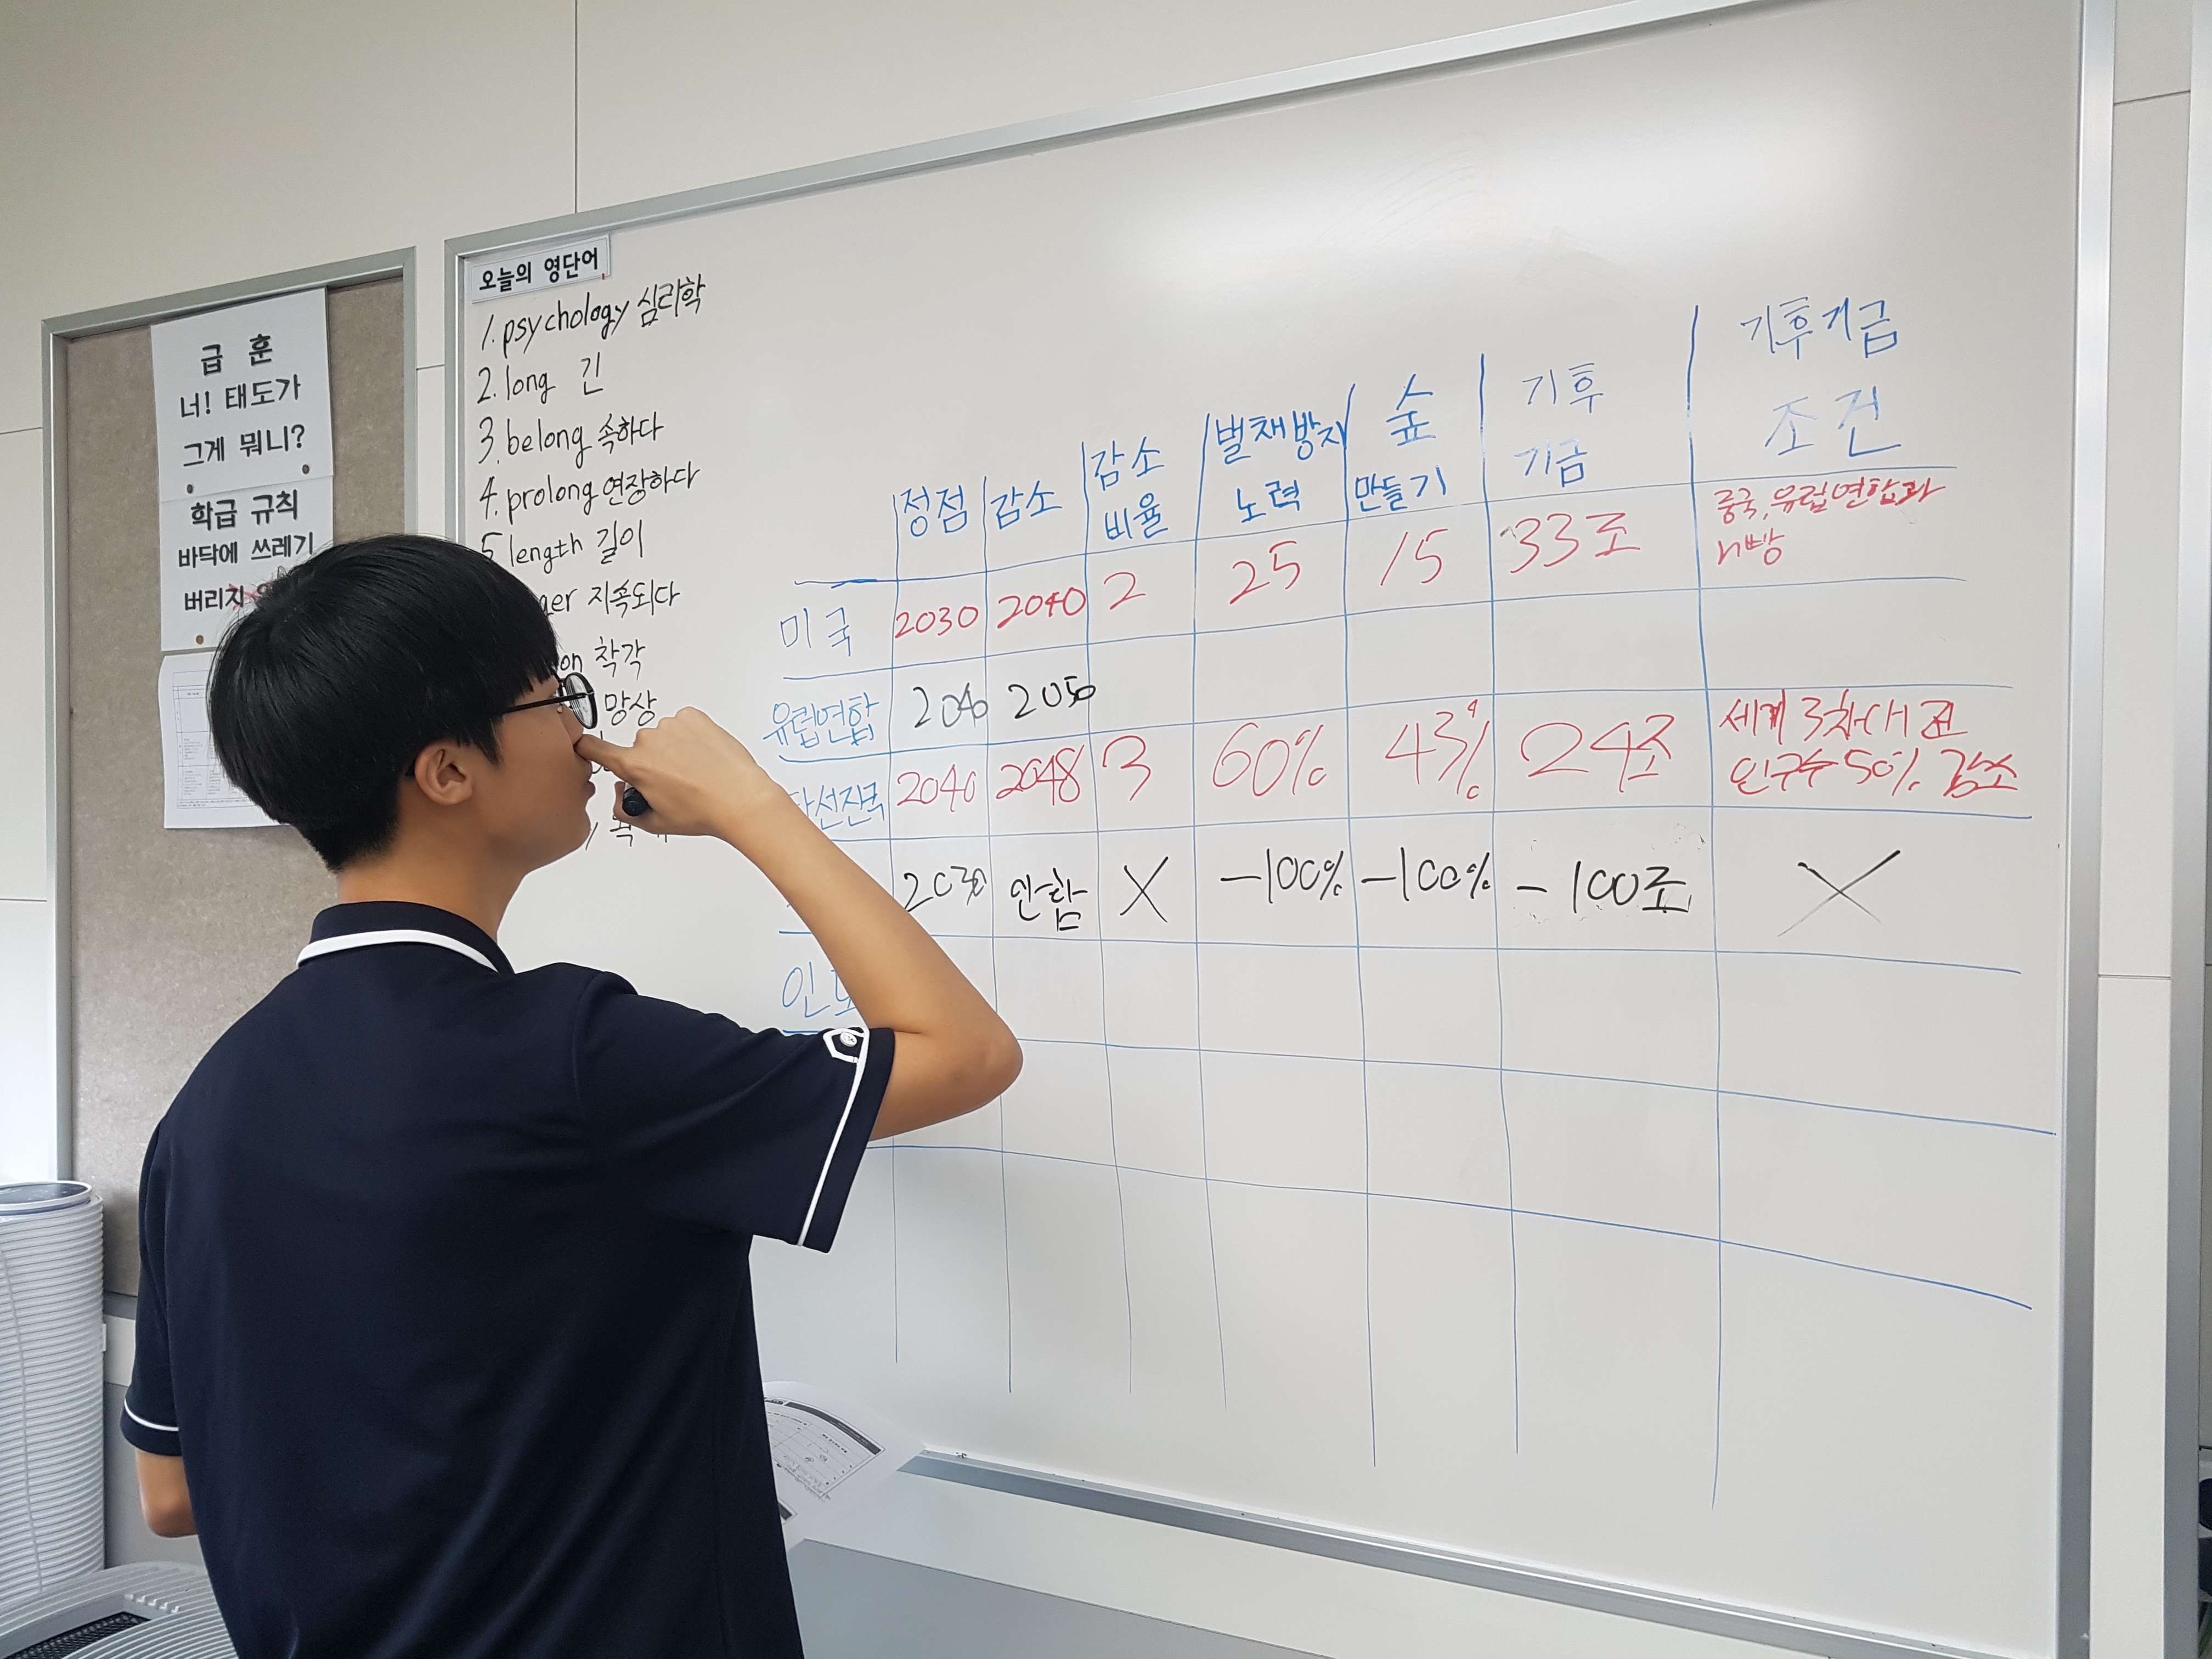 급 훈
너! 태도가
그게 뭐니?
학급 규칙
바닥에 쓰레기
버리지
오늘의 영단어
1. psychology 심리학
2. long 긴
3. belong 속하다
4. prolong 연장하다
5. length 길이
ger 지속되다
on 착각
망상
정점 감소 감소 비율 벌채방지 노력 숲 만들기 기후 기금 기후기금 조건
미국 2030 2040 2 25 15 33조 중국, 유럽연합과 n빵
유럽연합 2040 2050
선진국 2040 2048 3 60% 43% 24조 세계 3차대전 인구수 50% 감소
2030 안함 X -100% -100% -100조 X
인